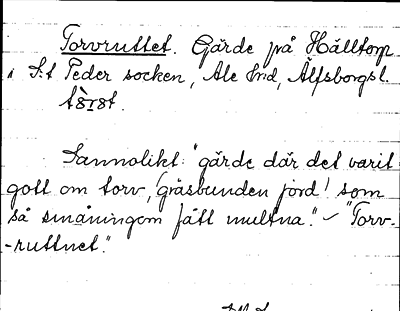 Torvruttet. Gärde på Hälltorp
i S:t Peder socken, Ale hd, Älfsborgs l.
Sannolikt: "gärde där det varit
gott om torv, 'gräsbunden jord' som
så småningom fått multna." – "Torv-
-ruttnet."